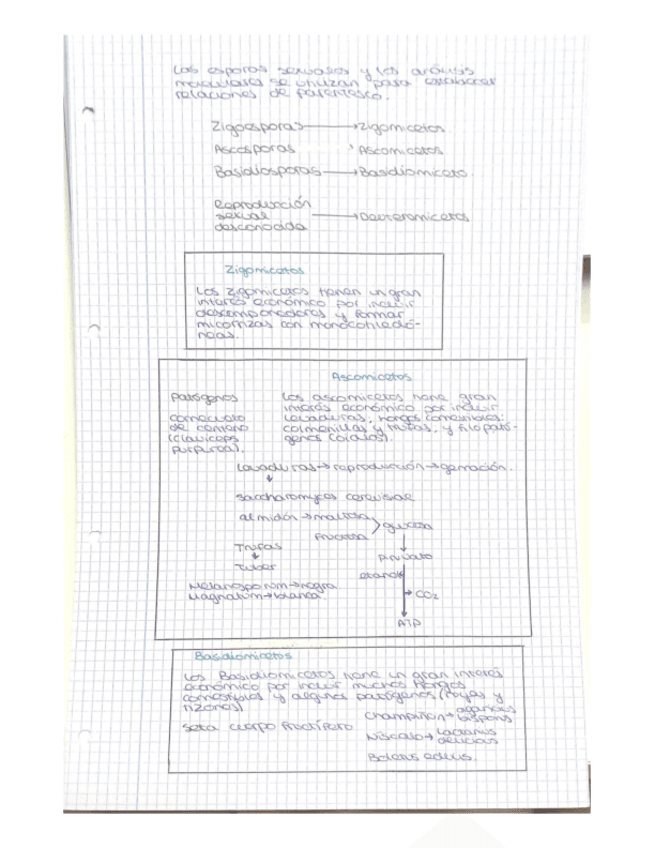 Las esporas sexuales y los análisis
moleculares se utilizan para establecer
relaciones de parentesco.
Zigoesporas → Zigomicetos
Ascosporas → Ascomicetos
Basidiosporas → Basidiomiceto
Reproducción
sexual
desconocida → Deuteromicetos
Zigomicetos
Los zigomicetos tienen un gran
interés económico por incluir
descomponedores y formar
micorrizas con monocotiledó-
neas.
Ascomicetos
Patógenos
cornezuelo
de centeno
(claviceps
purpurea).
Los ascomicetos tiene gran
interés económico por incluir
levaduras, hongos comestibles:
colmenillas y trufas, y fitopató-
genos (oidios).
Levaduras → reproducción → gemación.
↓
Saccharomyces cerevisiae
almidón → maltosa
fructosa
glucosa
↓
Piruvato
etanol
→ CO2
ATP
Trufas
↓
Tuber
Melanosporum → negra
Magnatum → blanca
Basidiomicetos
Los Basidiomicetos tiene un gran interés
económico por incluir muchos hongos
comestibles y algunos patógenos (royas y
tizones)
seta cuerpo fructífero
Champiñón → agaricus
bisporus
Níscalo → Lactarius
delicious
Boletus edulis.